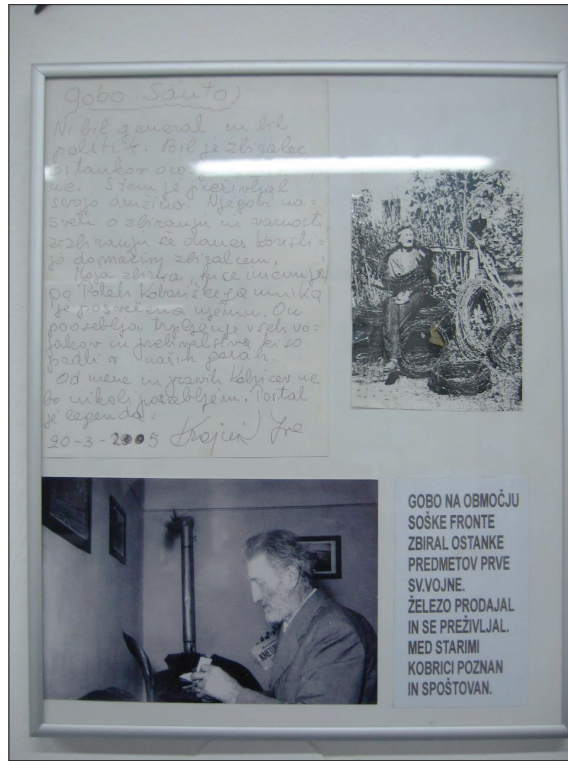 Gobo Santo
Ni bil general ni bil
politik. Bil je zbiralec
ostankov
S tem je preživljal
svojo družino. Njegovi na-
sveti o zbiranju in varnosti
zbiranju še danes
domačim zbiralcem.
Moja zbirka, ki se imenuje
po Poteh Kobariškega
je posvečena njemu. On
pooseblja trpljenje vseh vo-
jakov in prebivalstva ki so
padli v naših gorah.
Od mene in pravih Kobricev ne
bo nikoli pozabljen. Postal
je legenda.
20-3-2005
GOBO NA OBMOČJU
SOŠKE FRONTE
ZBIRAL OSTANKE
PREDMETOV PRVE
SV.VOJNE.
ŽELEZO PRODAJAL
IN SE PREŽIVLJAL.
MED STARIMI
KOBRICI POZNAN
IN SPOŠTOVAN.